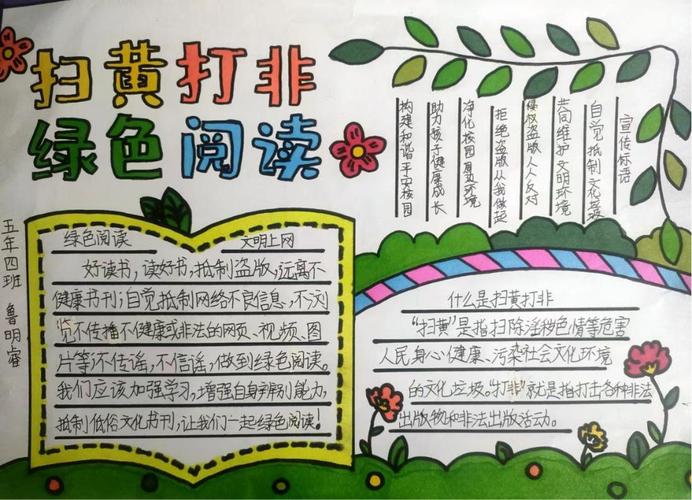 扫黄打非
绿色阅读
五年四班 鲁明睿
绿色阅读 文明上网
好读书，读好书，抵制盗版，远离不
健康书刊；自觉抵制网络不良信息，不浏
览不传播不健康或非法的网页、视频、图
片等不传谣，不信谣，做到绿色阅读。
我们应该加强学习，增强自身辨别能力，
抵制低俗文化书刊，让我们一起绿色阅读！
宣传标语
自觉抵制文化垃圾
共同维护文明环境
侵权盗版人人反对
拒绝盗版从我做起
净化校园周边环境
助力孩子健康成长
构建和谐平安校园
什么是扫黄打非
“扫黄”是指扫除淫秽色情等危害
人民身心健康、污染社会文化环境
的文化垃圾。“打非”就是指打击各种非法
出版物和非法出版活动。